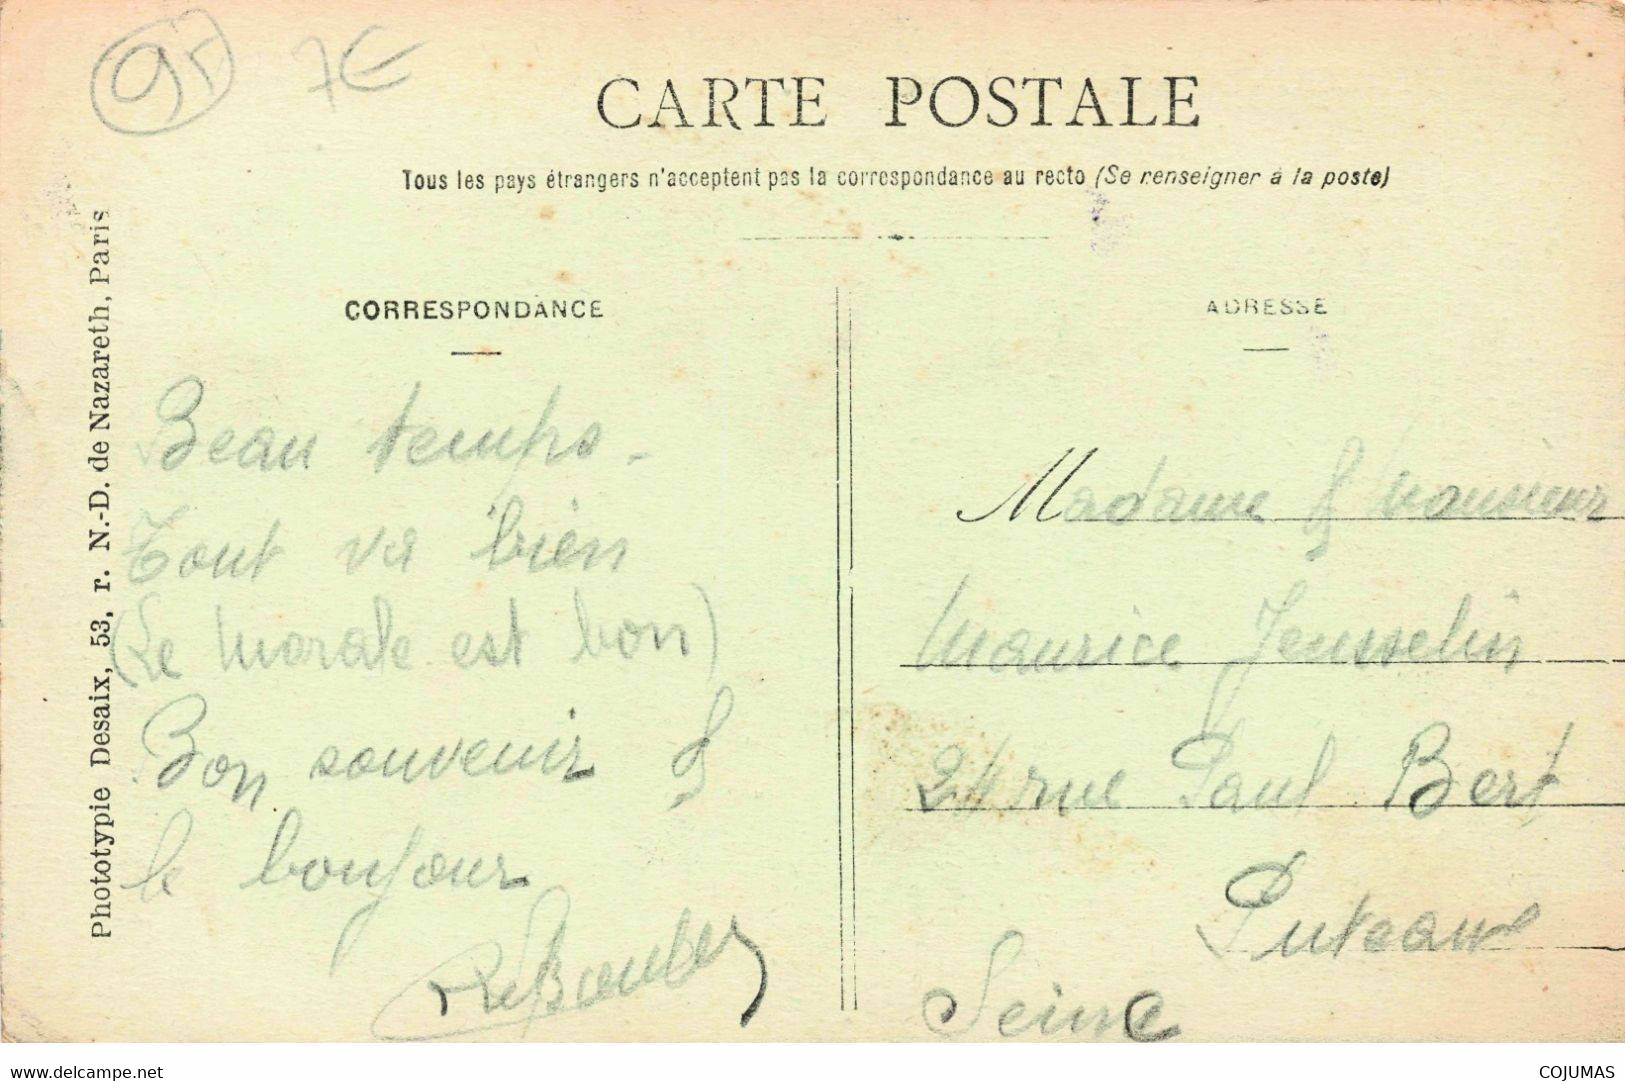 95 7€
CARTE POSTALE
Tous les pays étrangers n'acceptent pas la correspondance au recto (Se renseigner à la poste)
Phototypie Desaix, 53, r. N.-D. de Nazareth, Paris
CORRESPONDANCE
Beau temps.
Tout va bien
(Le morale est bon)
Bon souvenir &
le bonjour
ADRESSE
Madame & Monsieur
Maurice Jousselin
24 rue Paul Bert
Puteaux
Seine
delcampe.net
COJUMAS